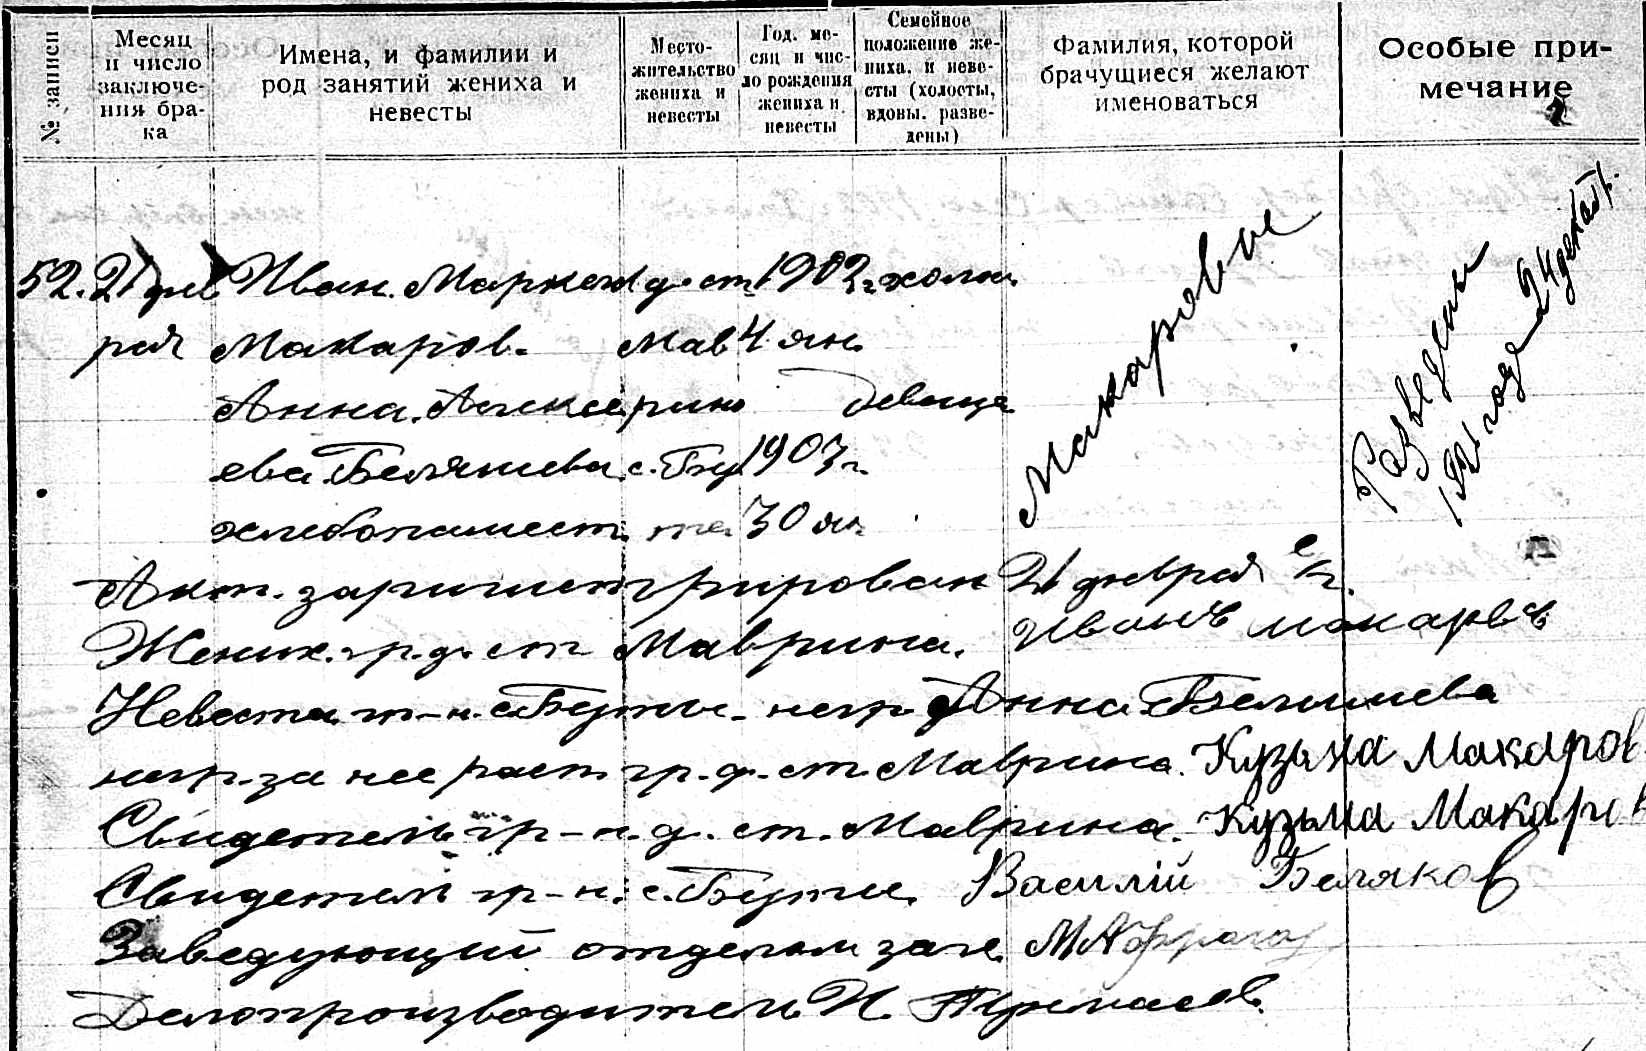 № записи
Месяц
и число
заключе-
ния бра-
ка
Имена, и фамилии и
род занятий жениха и
невесты
Место-
жительство
жениха и
невесты
Год. ме-
сяц и чис-
ло рождения
жениха и
невесты
Семейное
положение же-
ниха. и неве-
сты (холосты,
вдовы. разве-
дены)
Фамилия, которой
брачущиеся желают
именоваться
Особые при-
мечание
52. 21 фев Иван. д. ст. 1902 г. холос.
раля Макаров. Мав 4 ян.
Анна. Алексе рино девица
ева Белякиева с. Бу 1903 г.
хлебопашест. 30 ян.
Макаровы
Разведены
1921 года 24 декабр.
Акт. зарегистрирован 21 февраля с/г.
Жених. гр. д. ст Маврина. Иванъ Макаровъ
Невеста гр-н. с. Буты. негр. Анна
негр. за нее расп. гр. д. ст. Маврина. Кузьма Макаров
Свидетель гр-н. д. ст. Маврина. Кузьма Макаров
Свидетель гр-н. с. Буты. Василій Беляков
Заведующий отделом загс.
Делопроизводитель И.